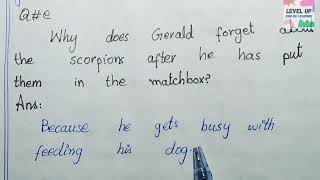 Q#e
LEVEL UP
Why does Gerald forget
the scorpions after he has put
them in the matchbox?
Ans:
Because he gets busy with
feeding his dog.